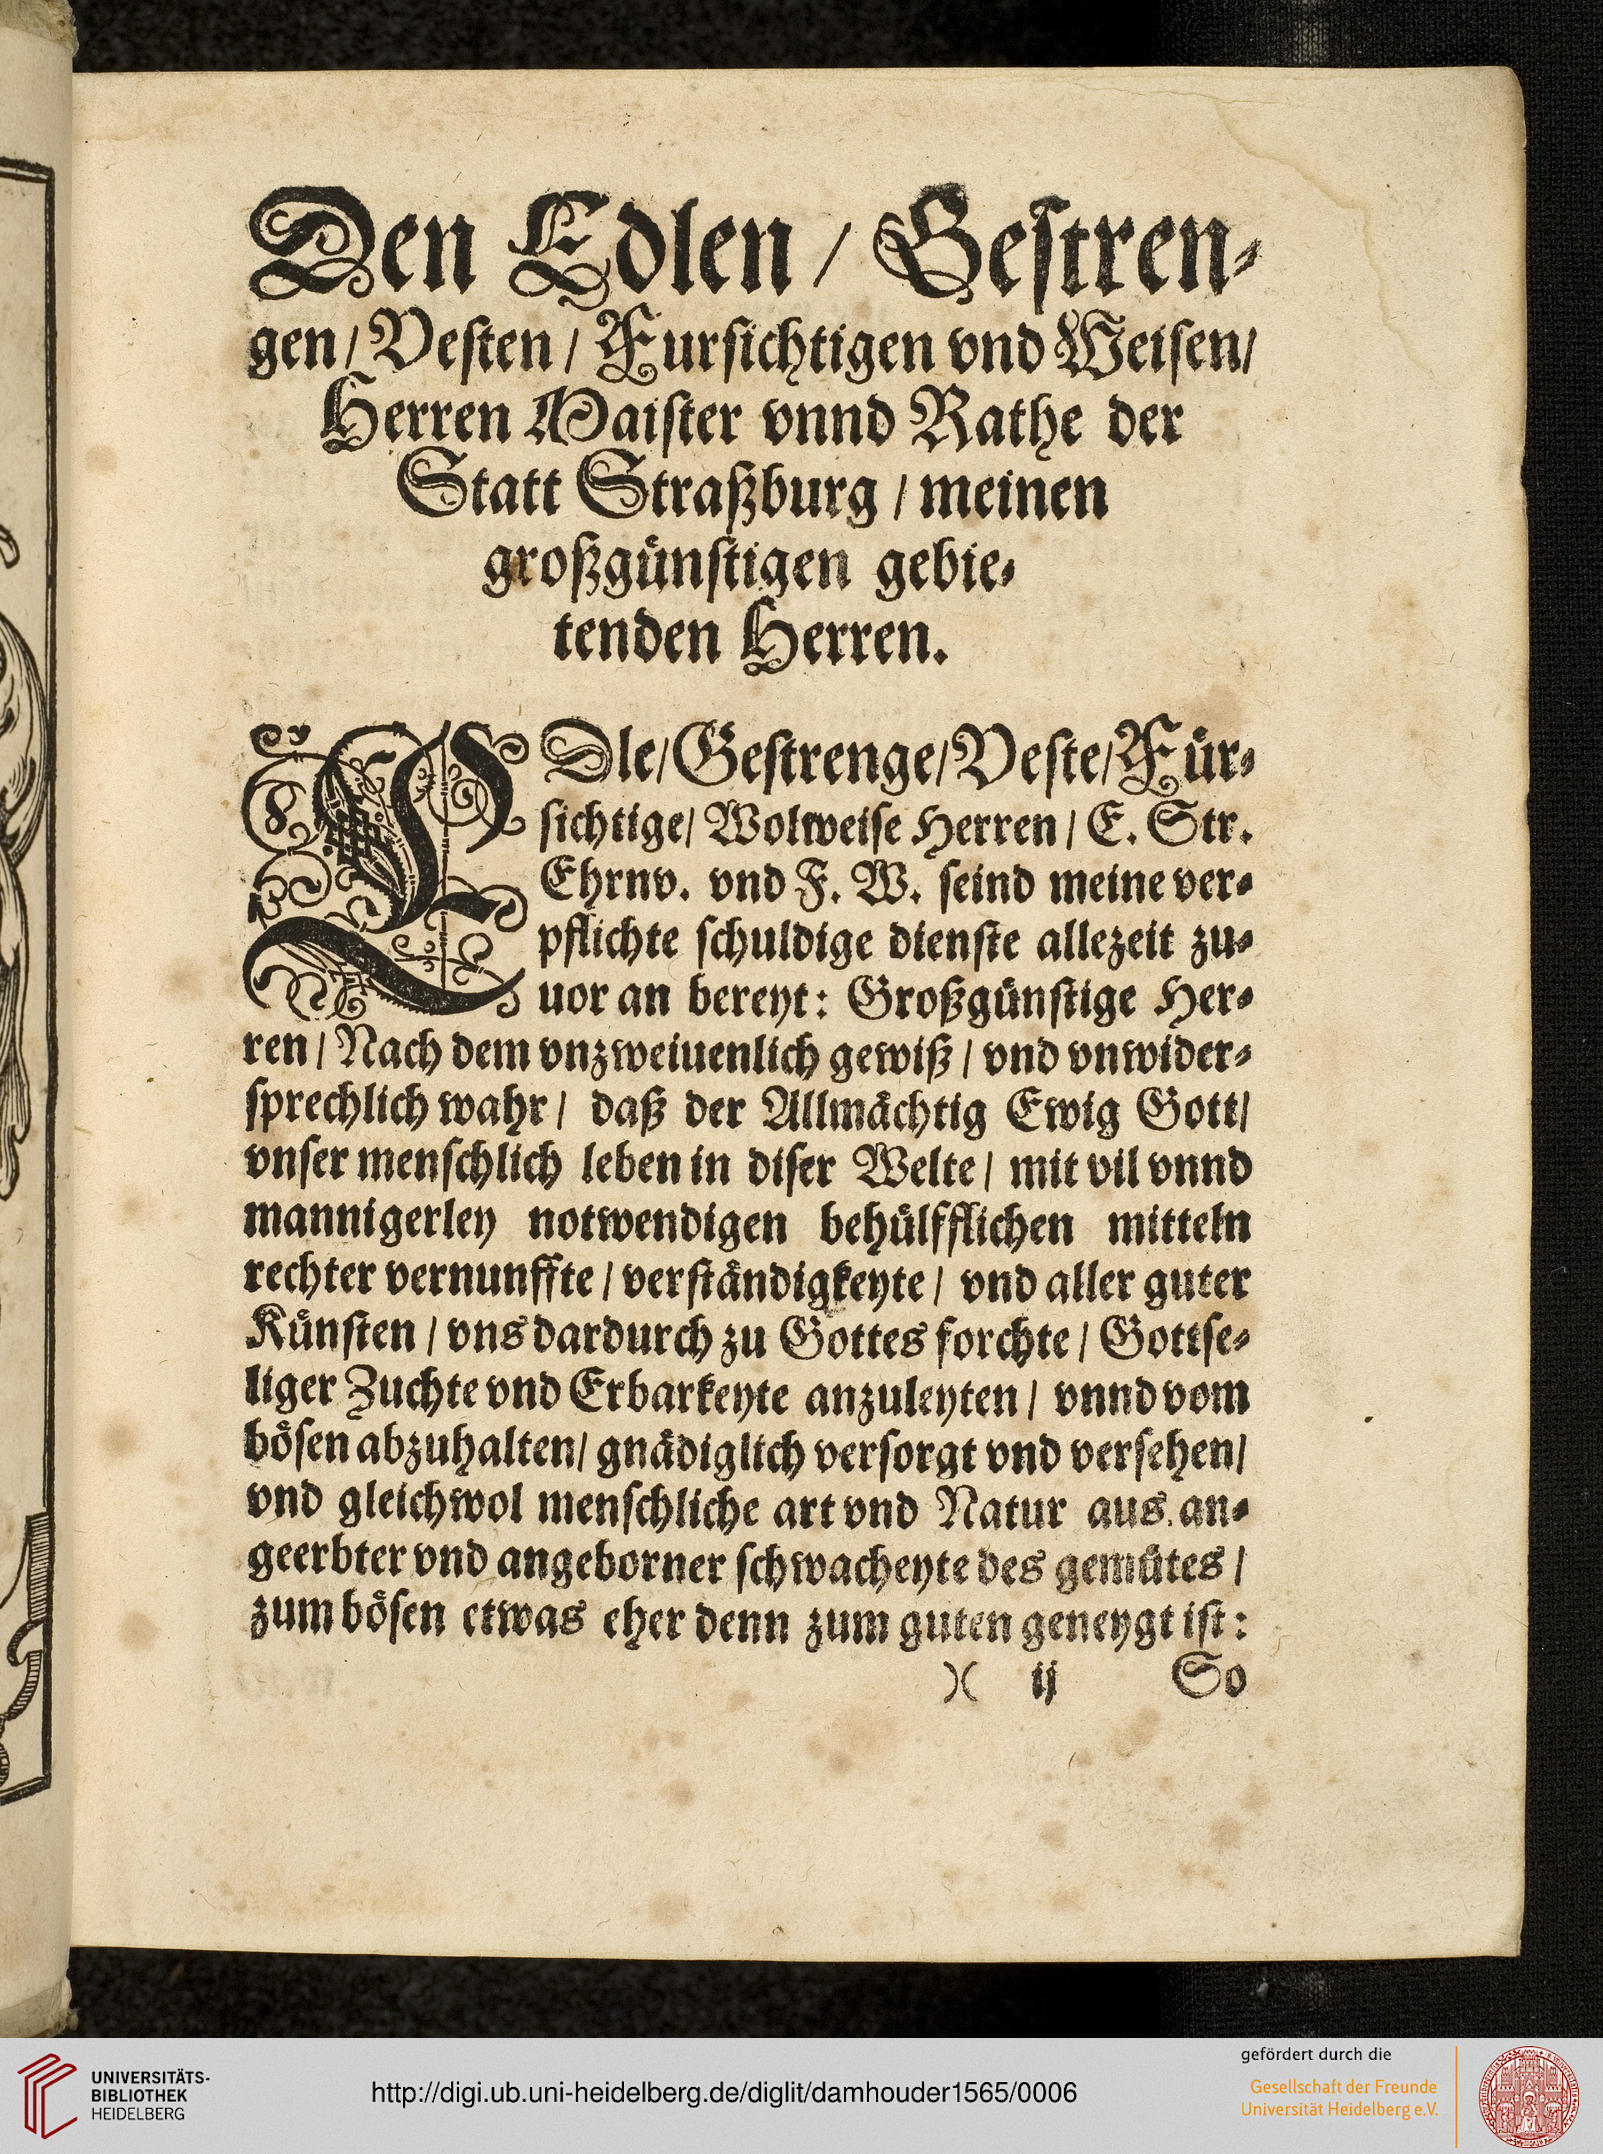 Den Edlen / Gestren-
gen / Vesten / Fursichtigen vnd Weisen /
Herren Maister vnnd Rathe der
Statt Straßburg / meinen
großgünstigen gebie-
tenden Herren.
EDle / Gestrenge / Veste / Für-
sichtige / Wolweise Herren / E. Str.
Ehrnv. vnd F. W. seind meine ver-
pflichte schuldige dienste allezeit zu-
uor an bereyt: Großgünstige Her-
ren / Nach dem vnzweiuenlich gewiß / vnd vnwider-
sprechlich wahr / daß der Allmächtig Ewig Gott /
vnser menschlich leben in diser Welte / mit vil vnnd
mannigerley notwendigen behülfflichen mitteln
rechter vernunffte / verständigkeyte / vnd aller guter
Künsten / vns dardurch zu Gottes forchte / Gottse-
liger Zuchte vnd Erbarkeyte anzuleyten / vnnd vom
bösen abzuhalten / gnädiglich versorgt vnd versehen /
vnd gleichwol menschliche art vnd Natur aus an-
geerbter vnd angeborner schwacheyte des gemütes /
zum bösen etwas eher denn zum guten geneygt ist:
)( ij So
UNIVERSITÄTS-
BIBLIOTHEK
HEIDELBERG
http://digi.ub.uni-heidelberg.de/diglit/damhouder1565/0006
gefördert durch die
Gesellschaft der Freunde
Universität Heidelberg e.V.